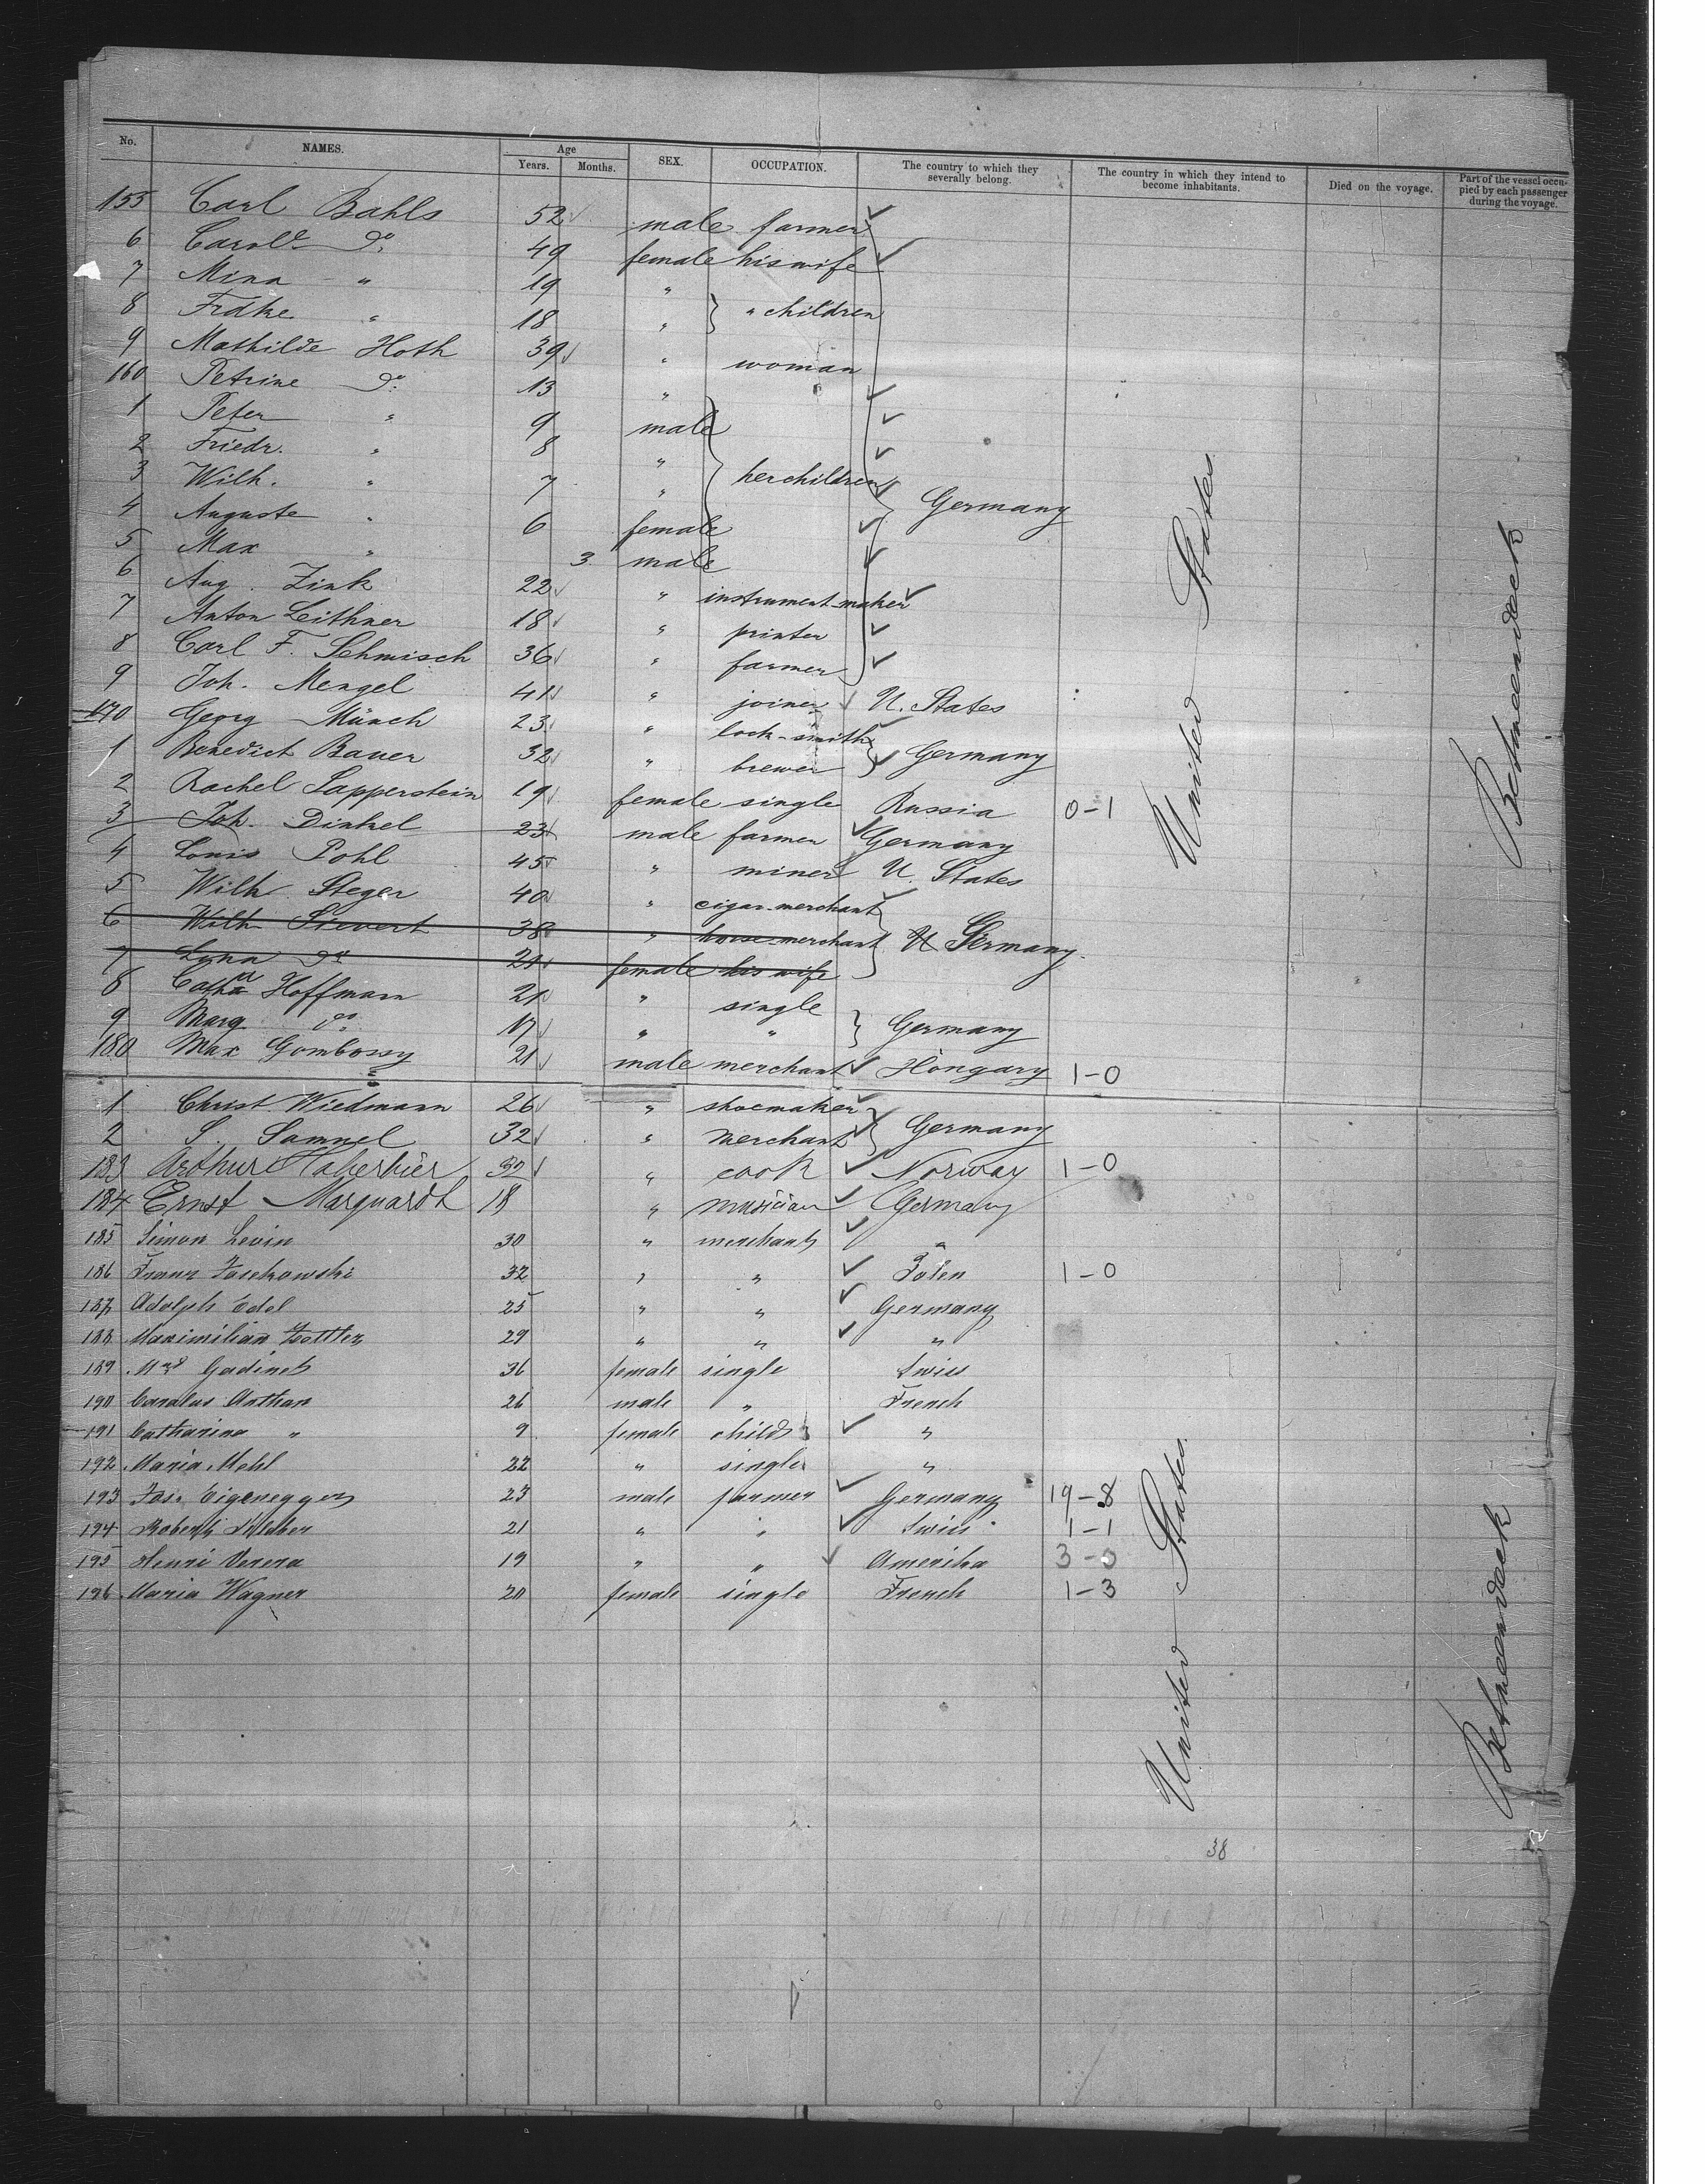 No. NAMES. Age Years. Months. SEX. OCCUPATION. The country to which they severally belong. The country in which they intend to become inhabitants. Died on the voyage. Part of the vessel occupied by each passenger during the voyage.
155 Carl Bahls 52 male farmer
6 Carol. do 49 female his wife
7 Mina " 19 "
8 Frdke " 18 " " children
9 Mathilde Hoth 39 " woman
160 Petrine do 13 "
1 Peter " 9 male
2 Friedr. " 8 "
3 Wilh. " 7 " her children Germany
4 Auguste " 6 female
5 Max " 3 male
6 Aug. Zink 22 " instrument-maker
7 Anton Leithner 18 " printer
8 Carl F. Schmisch 36 " farmer
9 Joh. Mengel 41 " joiner U. States
170 Georg Münch 23 " lock-smith
1 Benedict Bauer 32 " brewer Germany
2 Rachel Sapperstein 19 female single Russia 0-1
3 Joh. Dinkel 23 male farmer Germany
4 Louis Pohl 45 " miner U. States
5 Wilh. Steger 40 " cigar-merchant
6 Wilh. Sievert 38 " horse-merchant U Germany
7 Lyna do 21 female his wife
8 Catha Hoffmann 21 " single
9 Marg. do 17 " " Germany
180 Max Gombossy 21 male merchant Hongary 1-0
1 Christ. Wiedmann 26 " shoemaker
2 S. Samuel 32 " merchant Germany
183 Arthur Haherbier 32 " cook Norway 1-0
184 Ernst Marquardt 18 " musician Germany
185 Simon Levin 30 " merchant "
186 Franz 32 " " Polen 1-0
187 Adolph Edel 25 " " Germany
188 Maximilian 29 " " "
189 Gadinet 36 female single Swiss
190 Arthur 26 male " French
191 Catharina " 9 female child "
192 Maria Mehl 22 " single "
193 Jos. Eigenegger 23 male farmer Germany 19-8
194 Robert 21 " " Swiss 1-1
195 Henri Verera 19 " " Amerika 3-0
196 Maria Wagner 20 female single French 1-3
United States
Betweendeck
United States
Betweendeck
38